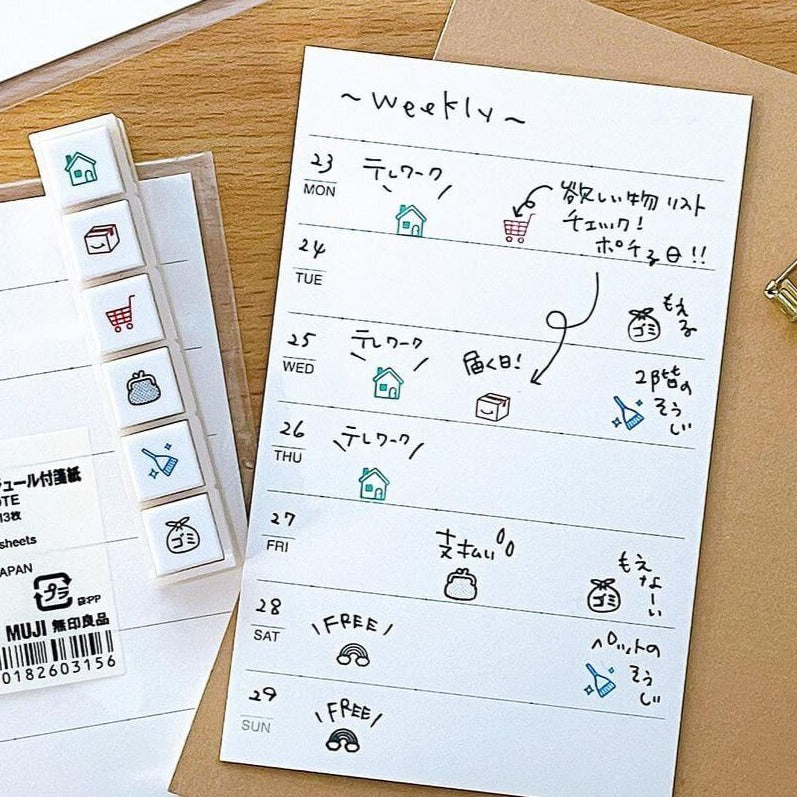 ~ Weekly ~
23
MON
テレワーク
欲しい物リスト
チェック!
ポチる日!!
24
TUE
ゴミ
もえ
る
25
WED
テレワーク
届く日!
2階の
そう
じ
26
THU
テレワーク
27
FRI
支払い
ゴミ
もえ
なーい
28
SAT
FREE
ペットの
そう
じ
29
SUN
FREE
ゴミ
ュール付箋紙
OTE
13枚
sheets
JAPAN
プラ
袋:PP
MUJI 無印良品
0182603156